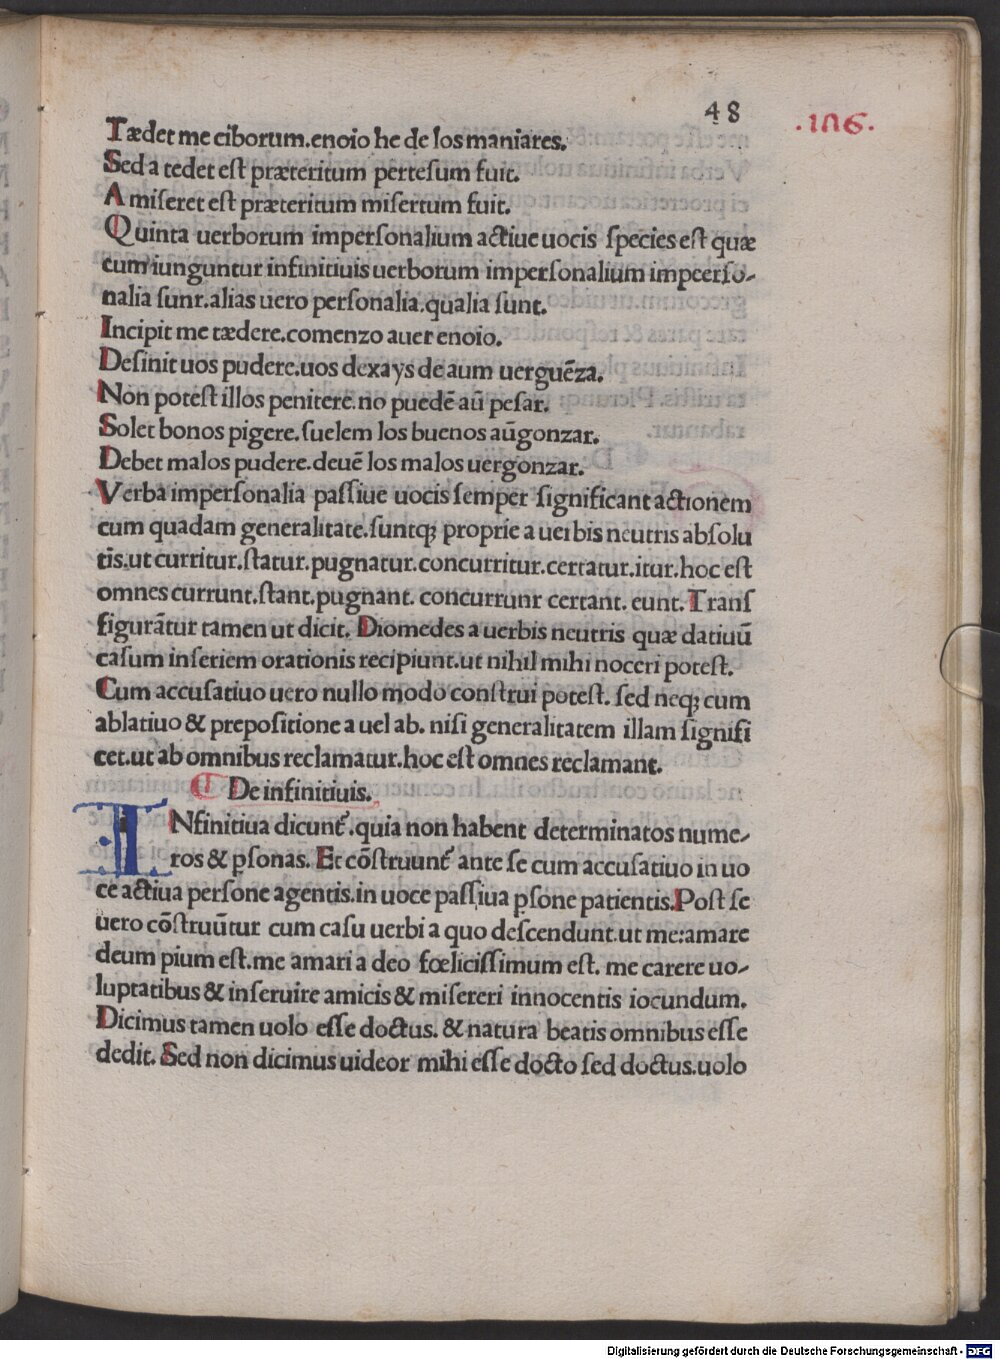 48
.186.
Tædet me ciborum.enoio he de los maniares.
Sed a tedet est præteritum pertesum fuit.
A miseret est præteritum misertum fuit.
Quinta uerborum impersonalium actiue uocis species est quæ
cum iunguntur infinitiuis uerborum impersonalium impeerso-
nalia sunr.alias uero personalia.qualia sunt.
Incipit me tædere.comenzo auer enoio.
Desinit uos pudere.uos dexays de aum uerguēza.
Non potest illos penitere.no puedē aū pesar.
Solet bonos pigere.suelem los buenos aūgonzar.
Debet malos pudere.deuē los malos uergonzar.
Verba impersonalia passiue uocis semper significant actionem
cum quadam generalitate.suntq; proprie a uerbis neutris absolu
tis.ut curritur.statur.pugnatur.concurritur.certatur.itur.hoc est
omnes currunt.stant.pugnant. concurrunr certant. eunt. Trans
figurātur tamen ut dicit. Diomedes a uerbis neutris quæ datiuū
casum inseriem orationis recipiunt.ut nihil mihi noceri potest.
Cum accusatiuo uero nullo modo construi potest. sed neq; cum
ablatiuo & prepositione a uel ab. nisi generalitatem illam signifi
cet.ut ab omnibus reclamatur.hoc est omnes reclamant.
De infinitiuis.
INfinitiua dicunt᷑.quia non habent determinatos nume-
ros & ꝑsonas. Et cōstruunt᷑ ante se cum accusatiuo in uo
ce actiua persone agentis.in uoce passiua ꝑsone patientis.Post se
uero cōstruūtur cum casu uerbi a quo descendunt.ut me:amare
deum pium est.me amari a deo fœlicissimum est. me carere uo-
luptatibus & inseruire amicis & misereri innocentis iocundum.
Dicimus tamen uolo esse doctus. & natura beatis omnibus esse
dedit. Sed non dicimus uideor mihi esse docto sed doctus.uolo
Digitalisierung gefördert durch die Deutsche Forschungsgemeinschaft - DFG